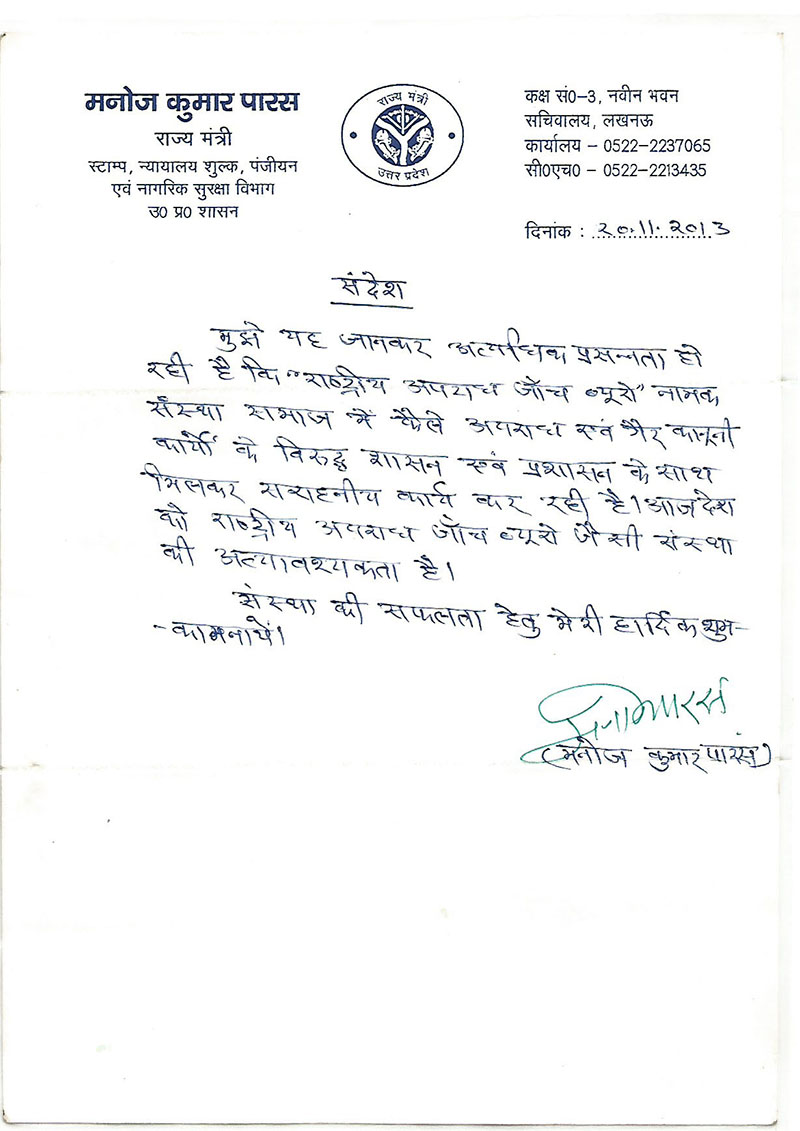 मनोज कुमार पारस
राज्य मंत्री
स्टाम्प, न्यायालय शुल्क, पंजीयन
एवं नागरिक सुरक्षा विभाग
उ0 प्र0 शासन
राज्य मंत्री
उत्तर प्रदेश
कक्ष सं0-3, नवीन भवन
सचिवालय, लखनऊ
कार्यालय - 0522-2237065
सी0एच0 - 0522-2213435
दिनांक : २०.11.2013
संदेश
मुझे यह जानकर अत्यधिक प्रसन्नता हो
रही है कि "राष्ट्रीय अपराध जॉच ब्यूरो" नामक
संस्था समाज में फैले अपराध एवं गैर कानूनी
कार्यों के विरुद्ध शासन एवं प्रशासन के साथ
मिलकर सराहनीय कार्य कर रही है। आज देश
को राष्ट्रीय अपराध जॉच ब्यूरो जैसी संस्था
की अत्यावश्यकता है।
संस्था की सफलता हेतु मेरी हार्दिक शुभ-
-कामनायें।
(मनोज कुमार पारस)